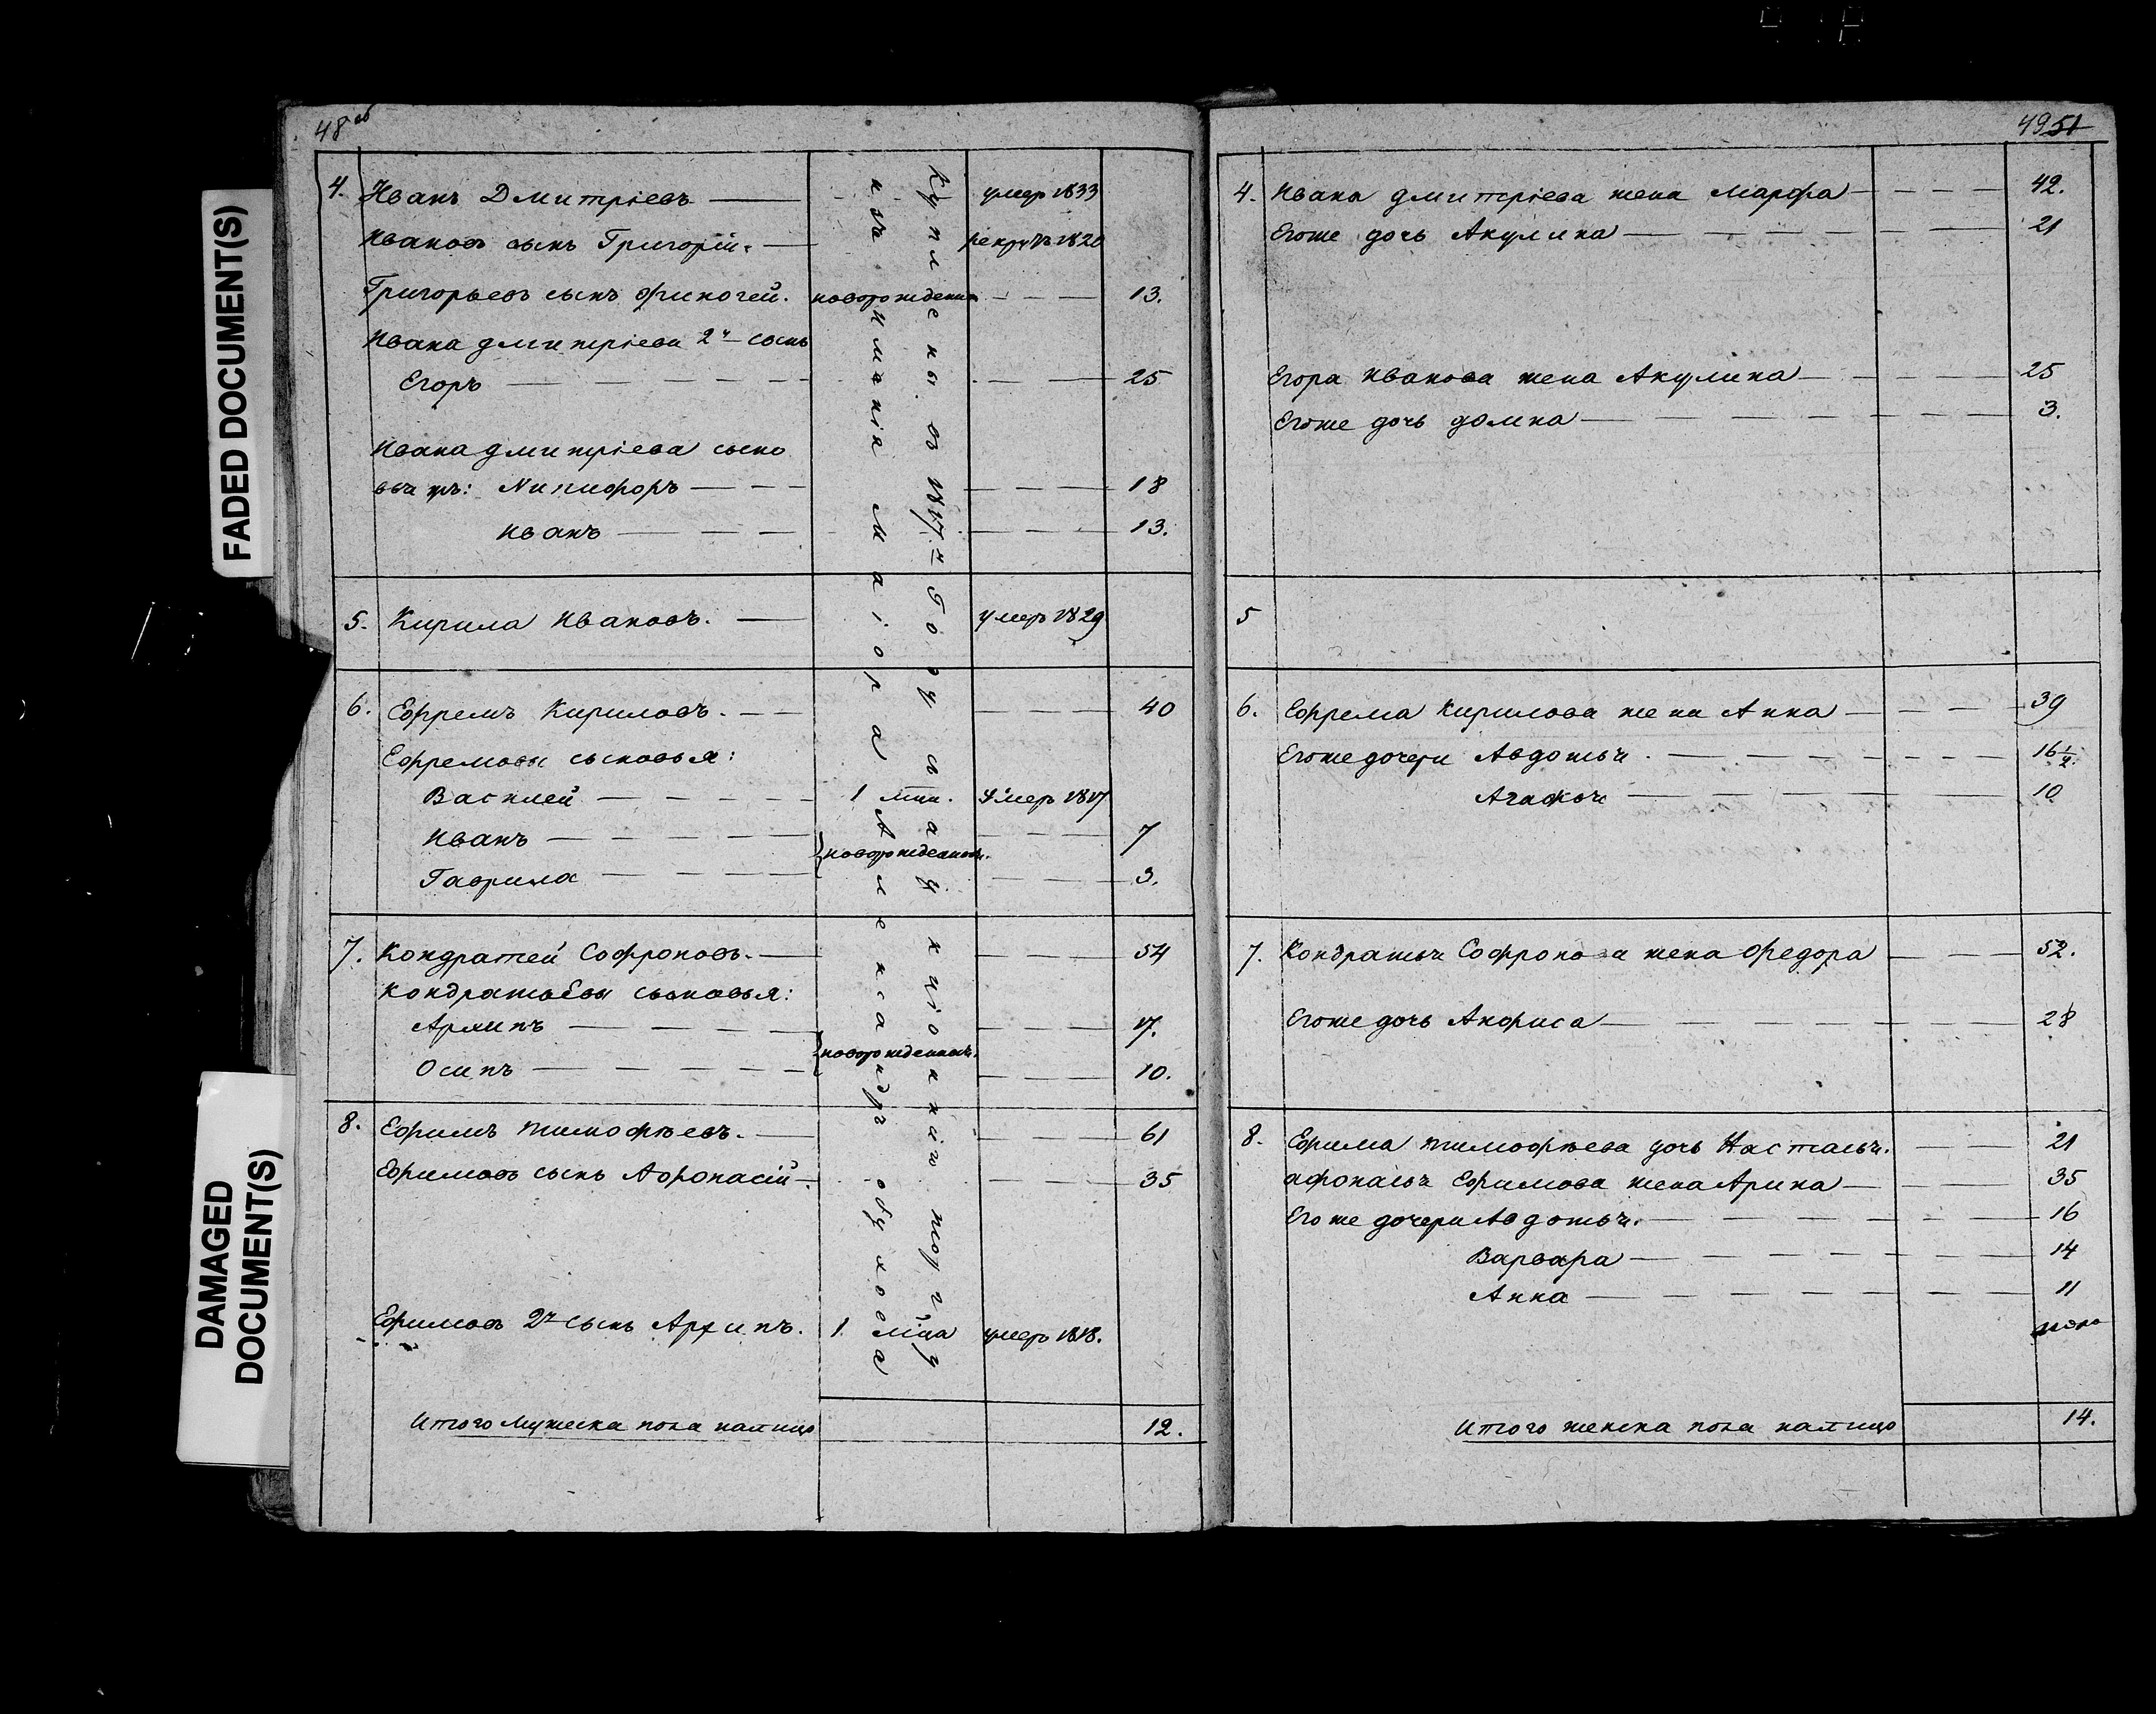 48 об
4. Иванъ Дмитріевъ — умеръ 1833
Ивановъ сынъ Григорій. — рекрутъ 1820
Григорьевъ сынъ Финогей. новорожденн — — — 13.
Ивана дмитріева 2й сынъ
Егоръ — — — — — 25
Ивана дмитріева сыно
вья: Никифоръ — — — 18
Иванъ — — — 13.
5. Кирила Ивановъ. — умеръ 1829
6. Ефремъ Кириловъ. — — 40
Ефремовы сыновья:
Василей — — — — 1 мци. Умеръ 1817
Иванъ — — — — 7
новорожденные.
Гаврила — — — — 3.
7. Кондратей Софроновъ. — 54
Кондратьевы сыновья:
Архипъ — — — — 17.
новорожденные.
Осипъ — — — — 10.
8. Ефимъ тимофѣевъ. — 61
Ефимовъ сынъ Афонасій — 35
Ефимовъ 2й сынъ Архипъ. 1. мца умеръ 1818.
Итого Мужеска пола налицо 12.
Куплены въ 1817м Году съ аукціоннаго торгу
изъ имѣнія маіора Александр обухова
FADED DOCUMENT(S)
DAMAGED
DOCUMENT(S)
49 51
4. Ивана дмитріева жена марфа — — — 42.
Егоже дочь Акулина — — — — 21
Егора иванова жена Акулина — — — 25
Егоже дочь домна — — — — 3.
5
6. Ефрема Кирилова жена Анна — — — 39
Егоже дочери Авдотья. — — — — 16 1/2.
Агафья — — — — 10
7. Кондратья Софронова жена Федора — — — 52.
Егоже дочь Анфиса — — — — 28
8. Ефима тимофѣева дочь Настасья. — — 21
афонасья Ефимова жена Арина — — — 35
Егоже дочери Авдотья. — — — — 16
Варвара — — — — 14
Анна — — — — 11
Итого женска пола налицо 14.